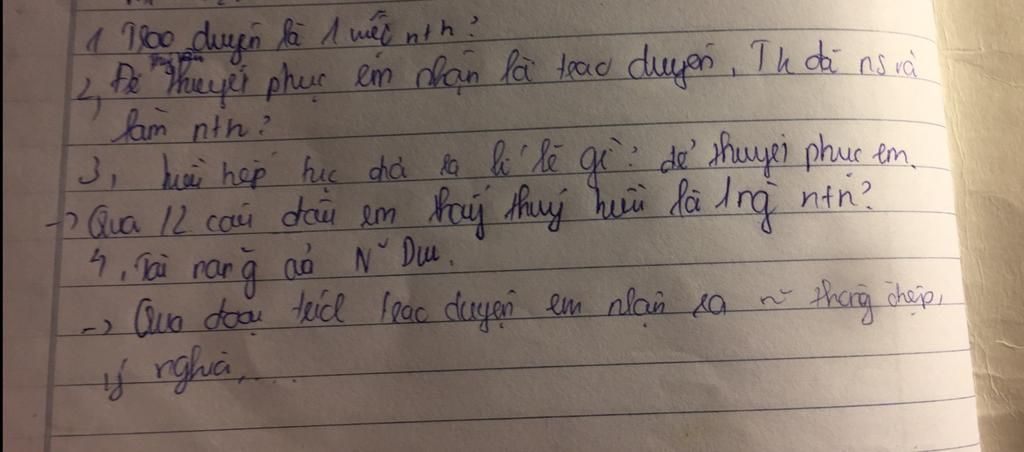 1 Trao duyên là 1 việc ntn?
2, Để thuyết phục em nhận lời trao duyên, TK đã ns và
làm ntn?
3, kiều đưa ra lí lẽ gì? để thuyết phục em.
-> Qua 12 câu đầu em thấy thuý kiều là 1 ng ntn?
4, Tài năng của Nᵕ Du.
-> Qua đoạn trích trao duyên em nhận ra nᵕ thông điệp,
ý nghĩa,....